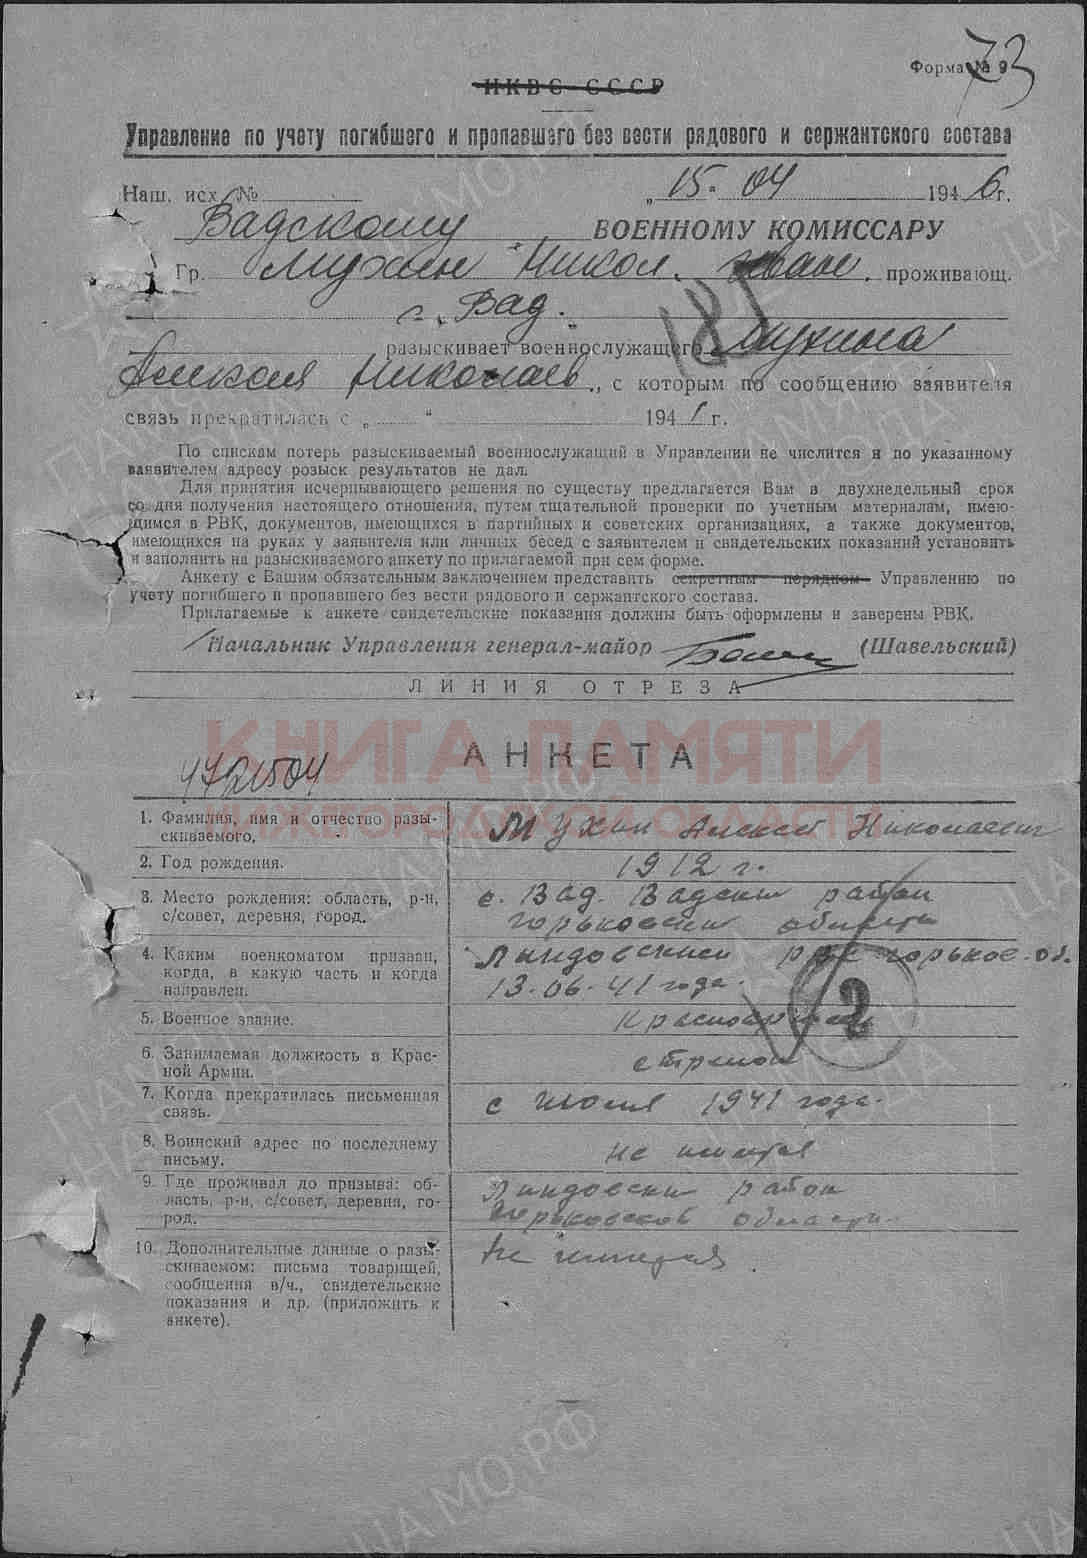 73
Форма № 9
НКВС СССР
Управление по учету погибшего и пропавшего без вести рядового и сержантского состава
Наш. исх. № „15" 04 1946г.
Вадскому ВОЕННОМУ КОМИССАРУ
Гр. Мухин Никол. Иван. проживающ.
с. Вад.
185
разыскивает военнослужащего Мухина
Алексея Николаев., с которым по сообщению заявителя
связь прекратилась с „ " 1941 г.
По спискам потерь разыскиваемый военнослужащий в Управлении не числится и по указанному
заявителем адресу розыск результатов не дал.
Для принятия исчерпывающего решения по существу предлагается Вам в двухнедельный срок
со дня получения настоящего отношения, путем тщательной проверки по учетным материалам, имею-
щимся в РВК, документов, имеющихся в партийных и советских организациях, а также документов,
имеющихся на руках у заявителя или личных бесед с заявителем и свидетельских показаний установить
и заполнить на разыскиваемого анкету по прилагаемой при сем форме.
Анкету с Вашим обязательным заключением представить секретным порядком Управлению по
учету погибшего и пропавшего без вести рядового и сержантского состава.
Прилагаемые к анкете свидетельские показания должны быть оформлены и заверены РВК.
Начальник Управления генерал-майор (Шавельский)
ЛИНИЯ ОТРЕЗА
КНИГА ПАМЯТИ
АНКЕТА
НИЖЕГОРОДСКОЙ ОБЛАСТИ
1. Фамилия, имя и отчество разы-
скиваемого.
Мухин Алексей Николаевич
2. Год рождения.
1912 г.
3. Место рождения: область, р-н,
с/совет, деревня, город.
с. Вад. Вадский район
Горьковский области
4. Каким военкоматом призван,
когда, в какую часть и когда
направлен.
Линдовским рвк Горьков. об.
13.06.41 года.
5. Военное звание.
Красноармеец
2
6. Занимаемая должность в Крас-
ной Армии.
стрелок
7. Когда прекратилась письменная
связь.
с июля 1941 года.
8. Воинский адрес по последнему
письму.
не имется
9. Где проживал до призыва: об-
ласть, р-н, с/совет, деревня, го-
род.
Линдовский район
Горьковской области.
10. Дополнительные данные о разы-
скиваемом: письма товарищей,
сообщения в/ч., свидетельские
показания и др. (приложить к
анкете).
Не имеется
ЦА МО.РФ